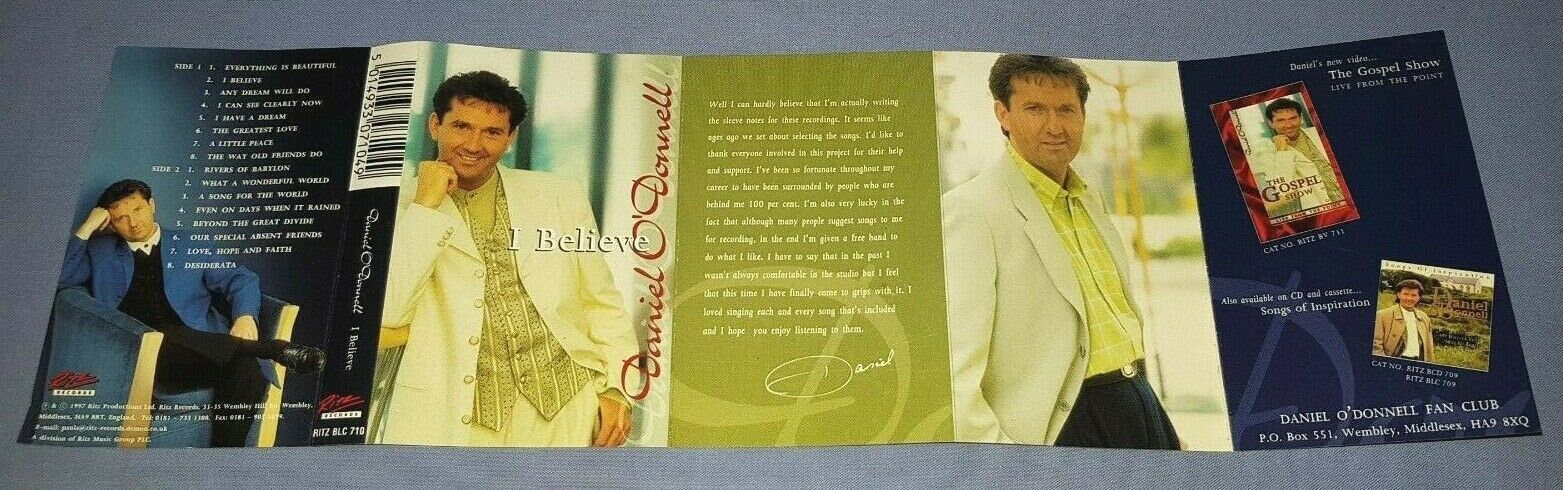 SIDE 1 1. EVERYTHING IS BEAUTIFUL
2. I BELIEVE
3. ANY DREAM WILL DO
4. I CAN SEE CLEARLY NOW
5. I HAVE A DREAM
6. THE GREATEST LOVE
7. A LITTLE PEACE
8. THE WAY OLD FRIENDS DO
SIDE 2 1. RIVERS OF BABYLON
2. WHAT A WONDERFUL WORLD
3. A SONG FOR THE WORLD
4. EVEN ON DAYS WHEN IT RAINED
5. BEYOND THE GREAT DIVIDE
6. OUR SPECIAL ABSENT FRIENDS
7. LOVE, HOPE AND FAITH
8. DESIDERATA
Ritz
RECORDS
℗ & © 1997 Ritz Productions Ltd. Ritz Records. 33-35 Wembley Hill Wembley,
Middlesex, HA9 8RT, England. Tel: 0181 - 733 1300. Fax: 0181 -
E-mail: paula@ritz-records.demon.co.uk
A division of Ritz Music Group PLC.
5 014933 071049
Daniel O'Donnell I Believe
Ritz
RECORDS
RITZ BLC 710
I Believe
Daniel O'Donnell
Well I can hardly believe that I'm actually writing
the sleeve notes for these recordings. It seems like
ages ago we set about selecting the songs. I'd like to
thank everyone involved in this project for their help
and support. I've been so fortunate throughout my
career to have been surrounded by people who are
behind me 100 per cent. I'm also very lucky in the
fact that although many people suggest songs to me
for recording, in the end I'm given a free hand to
do what I like. I have to say that in the past I
wasn't always comfortable in the studio but I feel
that this time I have finally come to grips with it. I
loved singing each and every song that's included
and I hope you enjoy listening to them.
Daniel
Daniel's new video...
The Gospel Show
LIVE FROM THE POINT
Daniel O'Donnell
THE
GOSPEL
SHOW
LIVE FROM THE POINT
CAT NO. RITZ BV 711
Also available on CD and cassette...
Songs of Inspiration
Songs Of Inspiration
Daniel
O'Donnell
CAT NO. RITZ BCD 709
RITZ BLC 709
DANIEL O'DONNELL FAN CLUB
P.O. Box 551, Wembley, Middlesex, HA9 8XQ